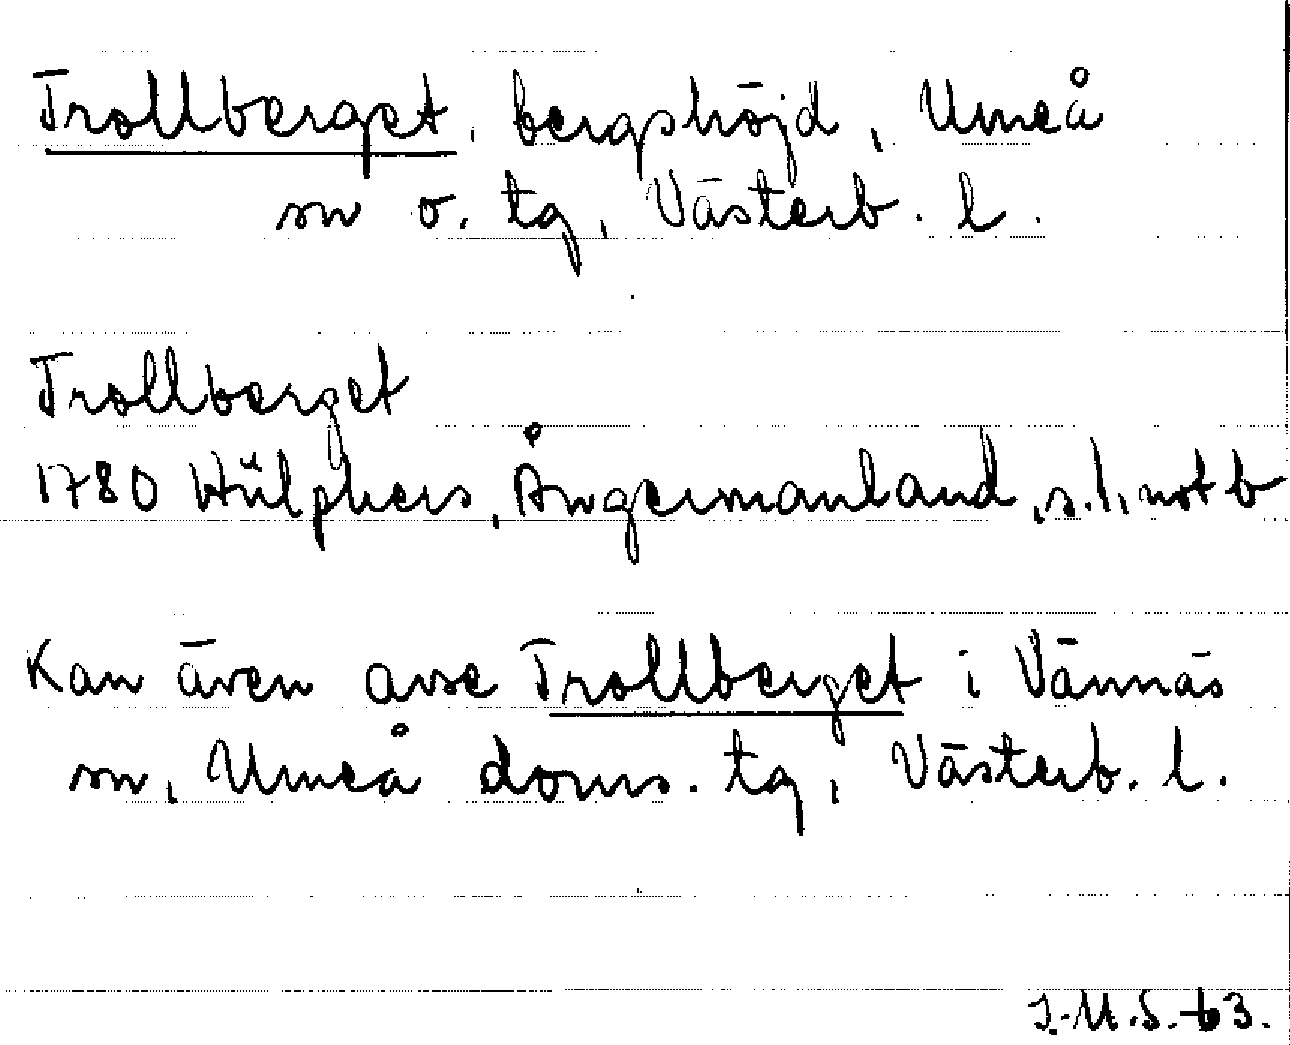 Trollberget, bergshöjd, Umeå
sn o. tg, Västerb. l.
Trollberget
1780 Hülphers, Ångermanland, s. 1, not b
Kan även avse Trollberget i Vännäs
sn, Umeå doms. tg, Västerb. l.
I.M.S.-63.